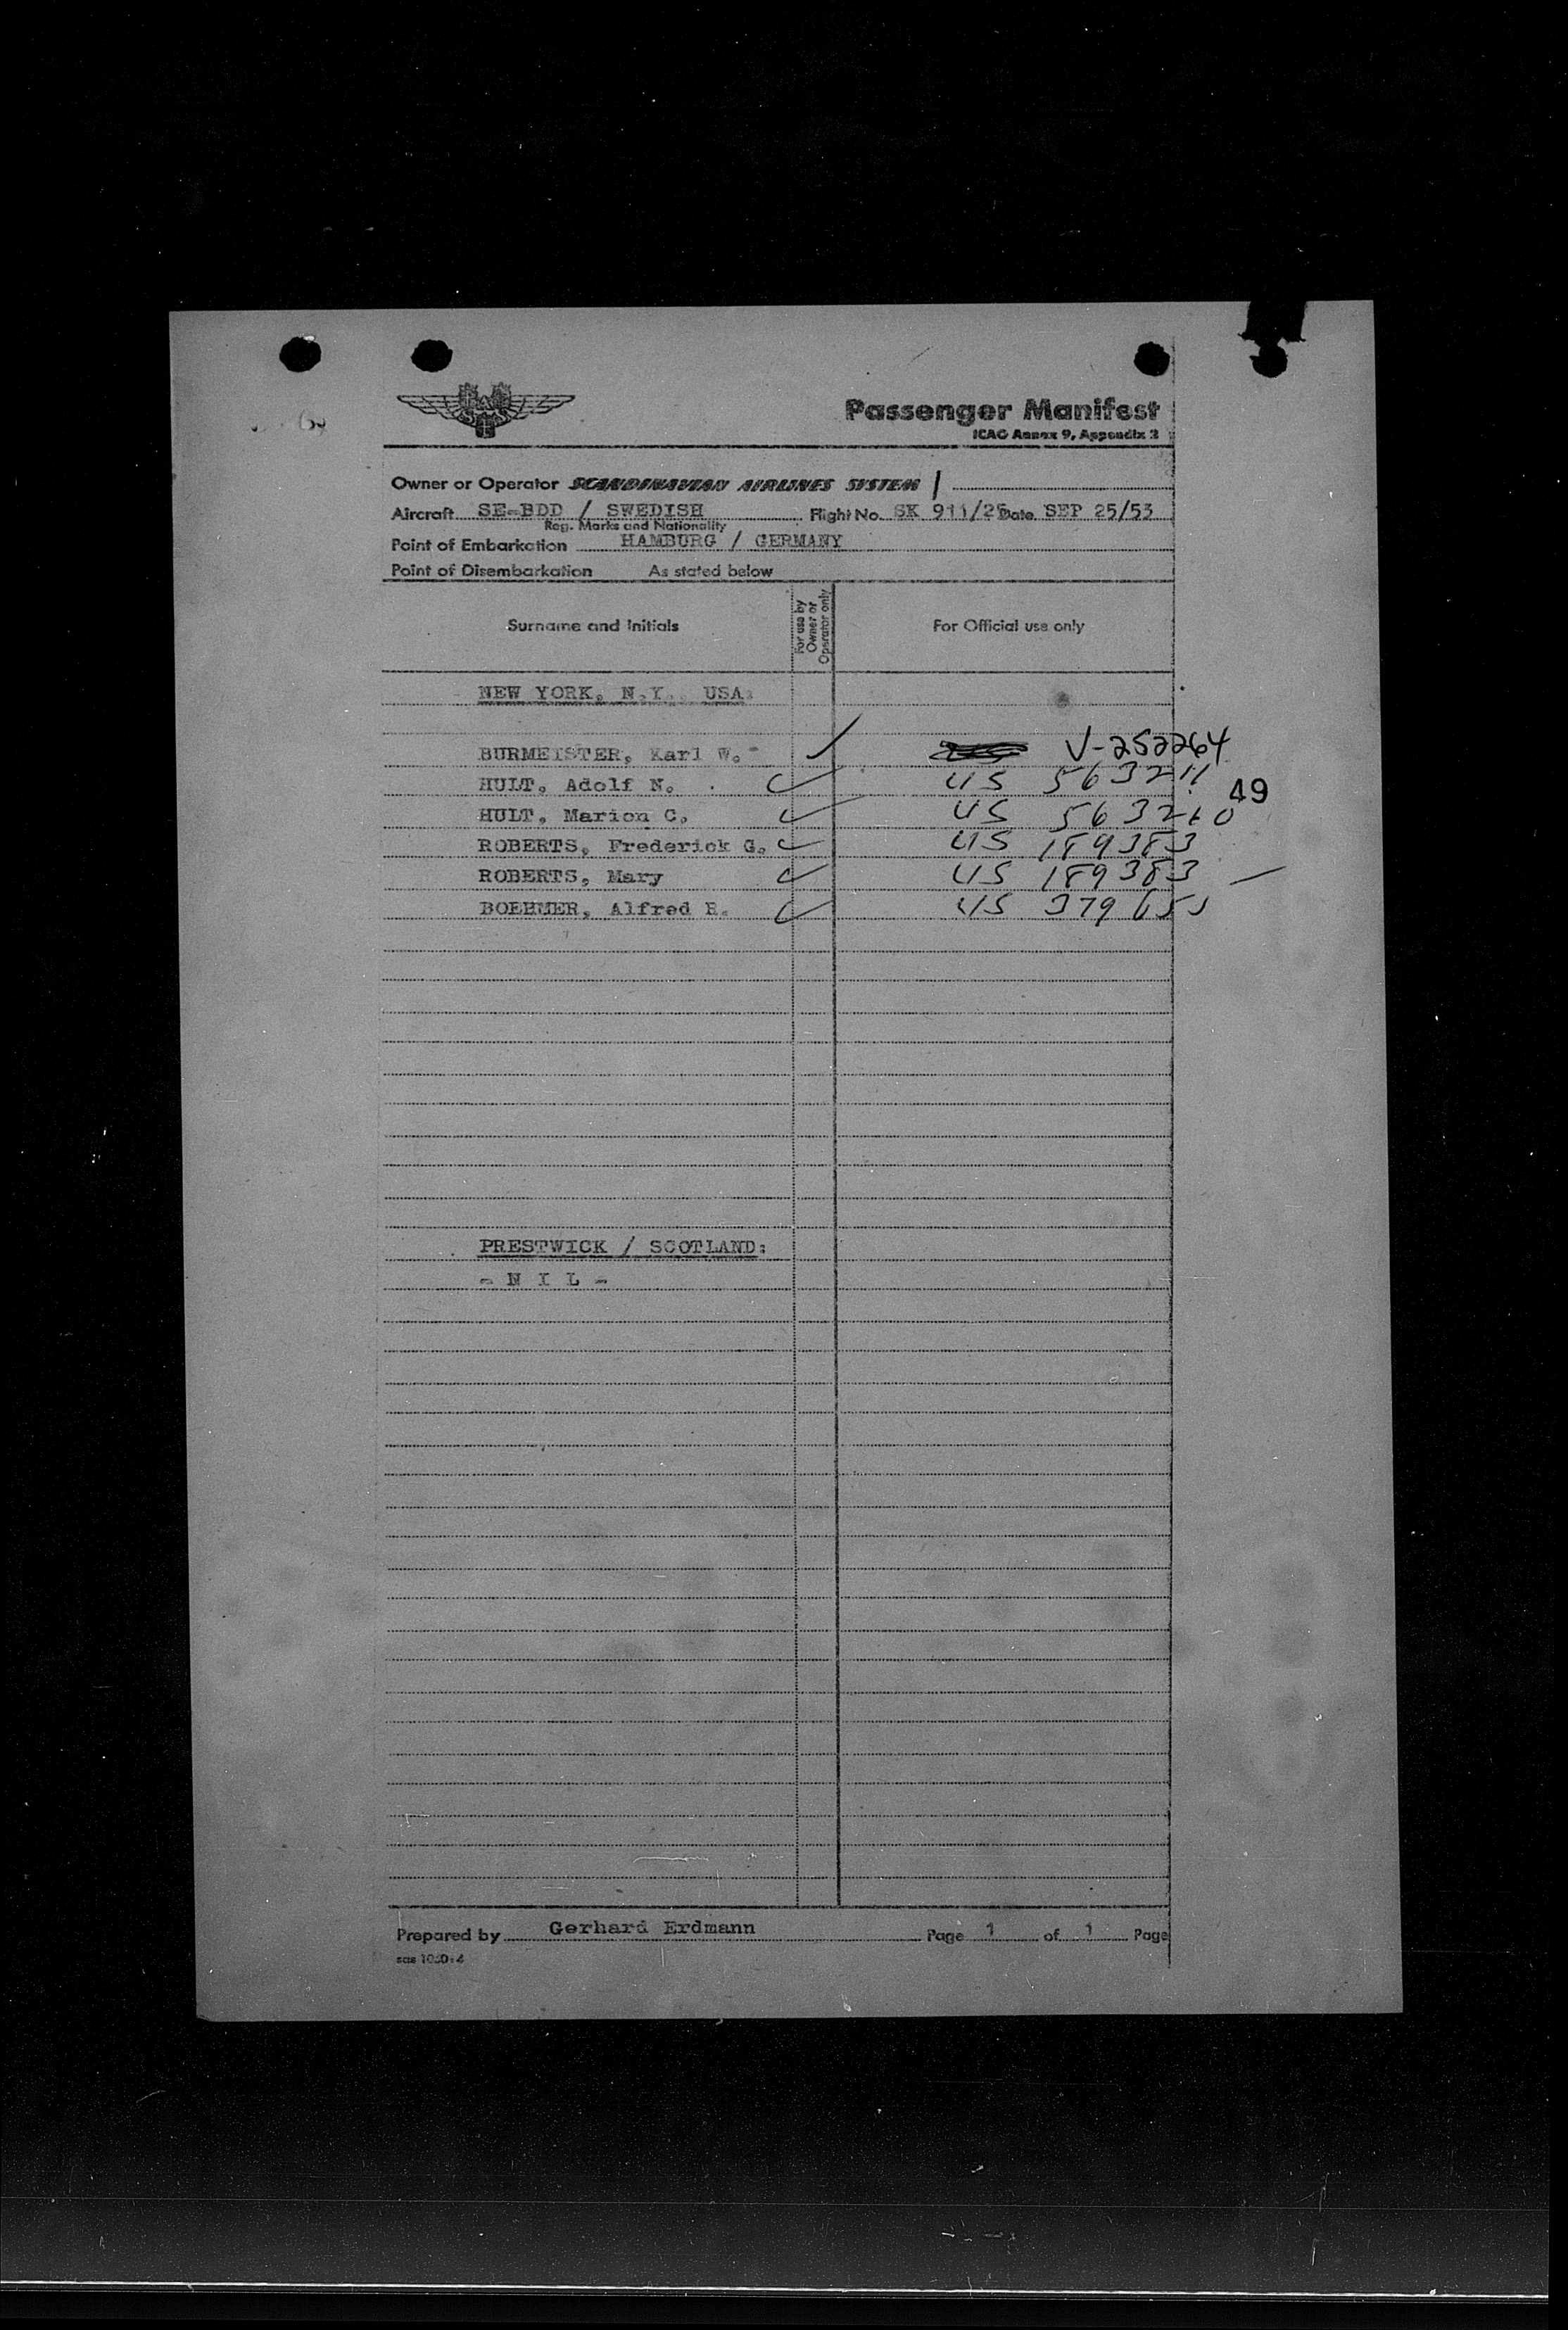 SAS
Passenger Manifest
ICAO Annex 9, Appendix 2
Owner or Operator SCANDINAVIAN AIRLINES SYSTEM
Aircraft SE-BDD / SWEDISH Flight No. SK 911/25 Date SEP 25/53
Reg. Marks and Nationality
Point of Embarkation HAMBURG / GERMANY
Point of Disembarkation As stated below
Surname and Initials For use by Owner or Operator only For Official use only
NEW YORK, N.Y. USA:
BURMEISTER, Karl W. V-252264
HULT, Adolf N. US 563211
49
HULT, Marion C. US 563210
ROBERTS, Frederick G. US 189383
ROBERTS, Mary US 189383
BOEHMER, Alfred R. US 379655
PRESTWICK / SCOTLAND:
- N I L -
Prepared by Gerhard Erdmann Page 1 of 1 Page